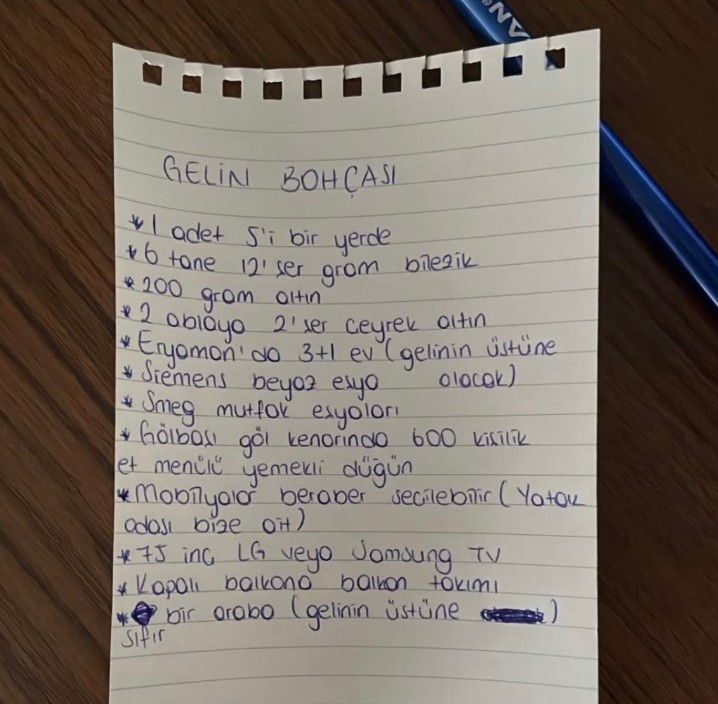 GELİN BOHÇASI
* 1 adet 5'i bir yerde
* 6 tane 12'ser gram bilezik
* 200 gram altın
* 2 ablaya 2'ser ceyrek altın
* Eryaman'da 3+1 ev (gelinin üstüne
* Siemens beyaz eşya olacak)
* Smeg mutfak eşyaları
* Gölbaşı göl kenarında 600 kişilik
et menülü yemekli düğün
* Mobilyalar beraber seçilebilir (Yatak
odası bize ait)
* 75 inç LG veya Samsung TV
* Kapalı balkona balkon takımı
* bir araba (gelinin üstüne )
sıfır